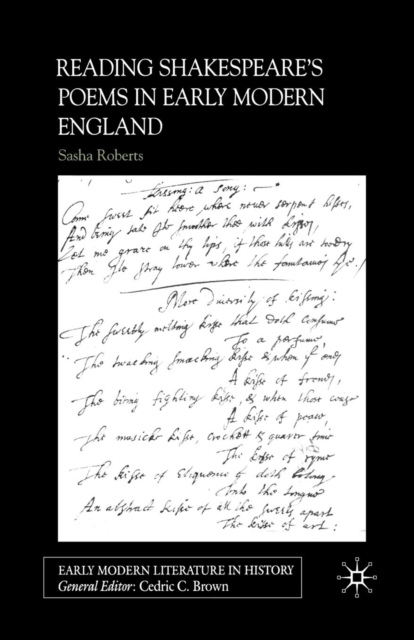 READING SHAKESPEARE'S
POEMS IN EARLY MODERN
ENGLAND
Sasha Roberts
Kissing: A Song:
Come sweet sit heere where never serpent hisses,
And being sate Ile smoother thee with kisses,
Let me graze on thy lips, if those hills are
Then Ile stray lower where the fountaines lye.
More Diversity of kissing:
The sweetly melting kisse that doth consume
To a perfume,
The smacking kisse & when it ends
A kisse of frends,
The biting fighting kisse, & when those cease
A kisse of peace,
The musicke kisse, crochet & quaver time
The kisse of ryme
The kisse of Eloquence doth belong
Unto the tongue
An abstract kisse of all the sweets apart
The kisse of art:
EARLY MODERN LITERATURE IN HISTORY
General Editor: Cedric C. Brown